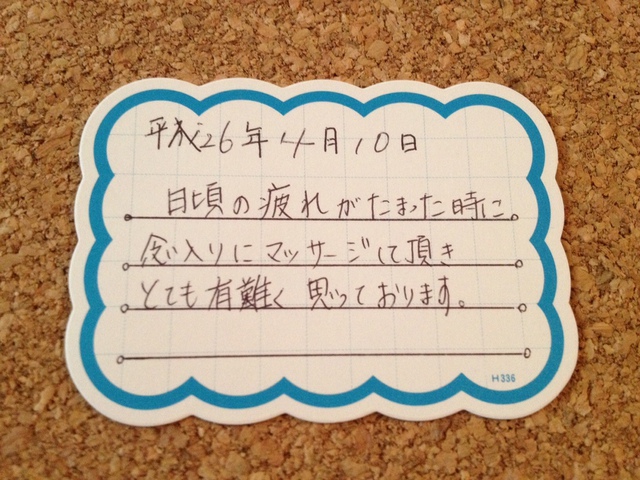 平成26年4月10日
日頃の疲れがたまった時に
念入りにマッサージして頂き
とても有難く思っております。
H336